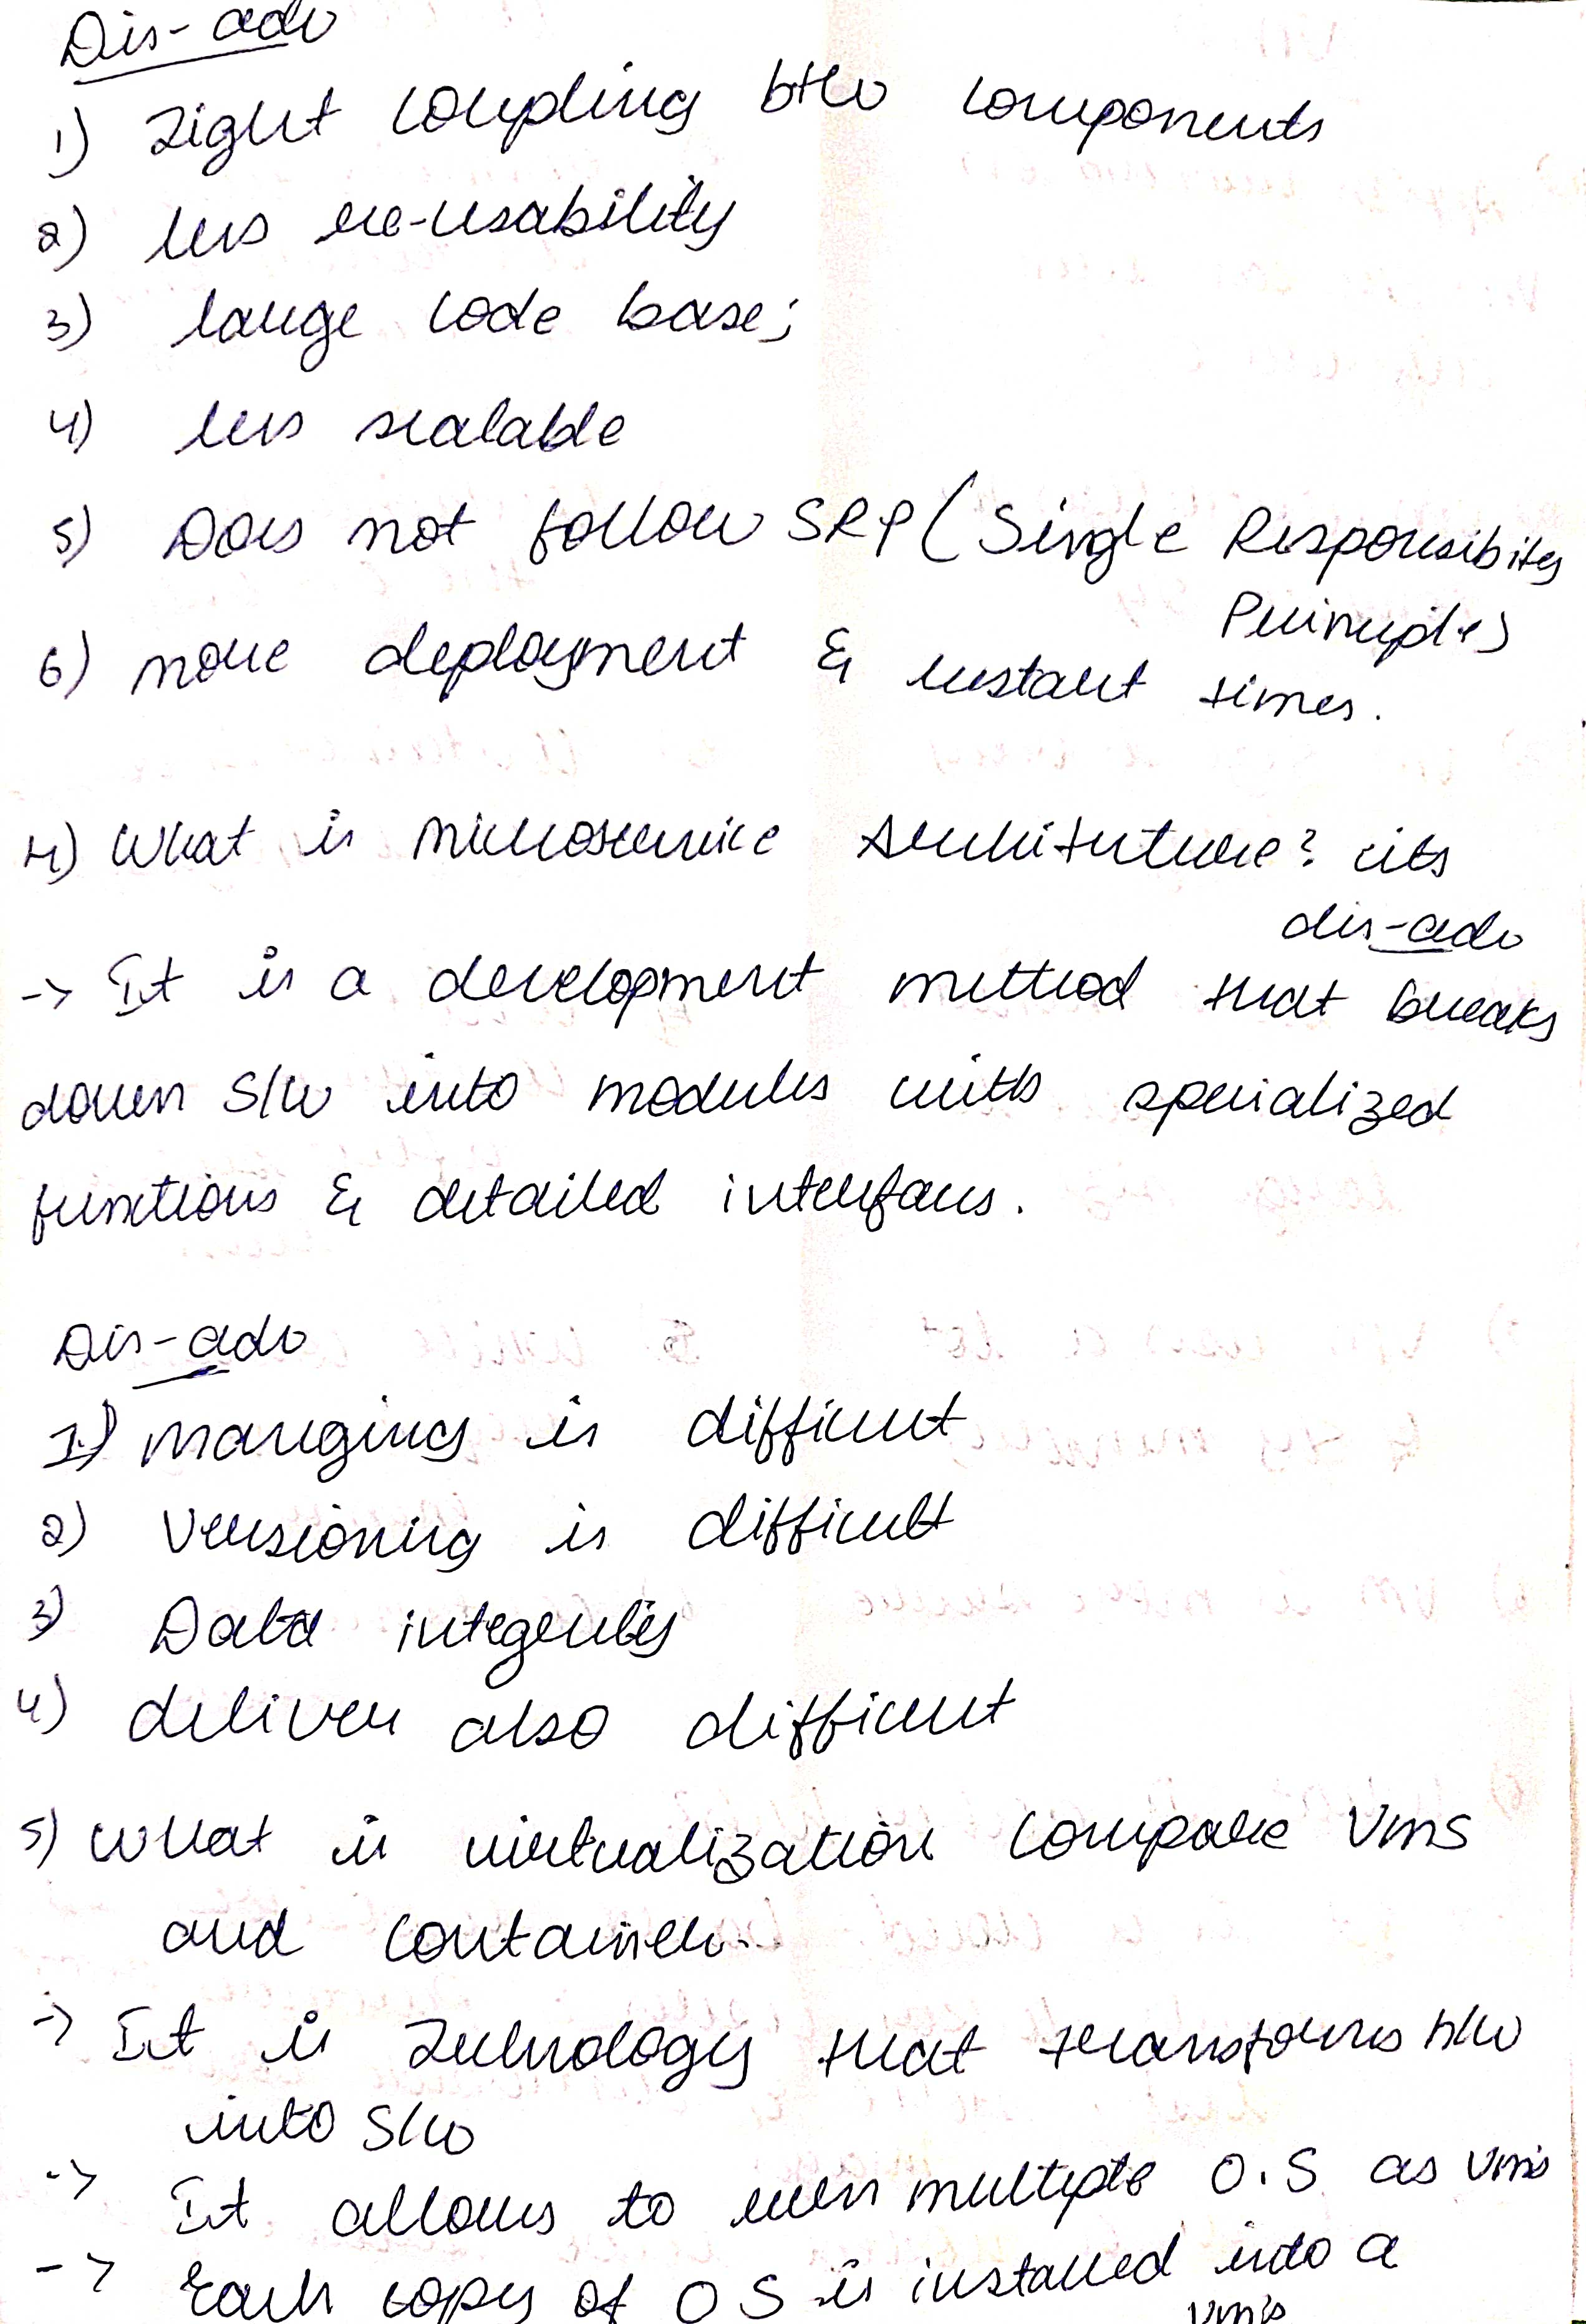 Dis-adv
1) Tight coupling btw components
2) less re-usability
3) large code base;
4) less scalable
5) Does not follow SRP (Single Responsibity
Principle)
6) more deployment & restart times.
4) What is microservice Architecture? its
dis-adv
-> It is a development method that breaks
down S/w into modules with specialized
functions & detailed interfaces.
Dis-adv
1) Manging is difficult
2) Versioning is difficult
3) Data integerity
4) deliver also difficult
5) What is virtualization compare Vms
and container.
-> It is Technology that transforms h/w
into S/w
-> It allows to run multiple O.S as Vm's
-> Each copy of OS is installed into a
vm's